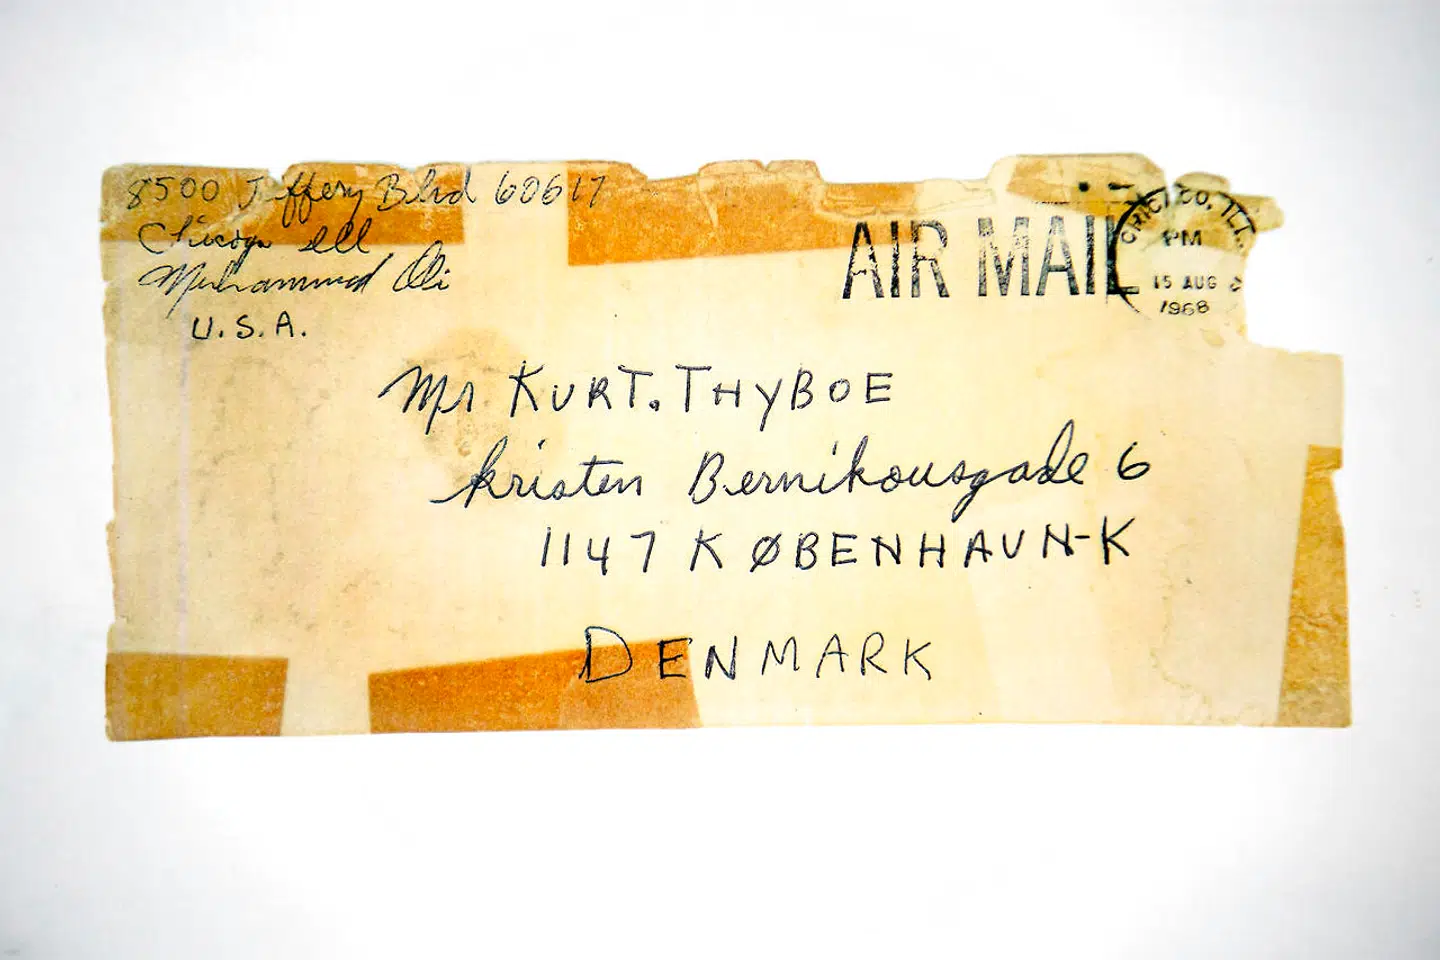 8500 Jeffery Blvd 60617
Chicago Ill
Muhammad Ali
U.S.A.
AIR MAIL
CHICAGO, ILL.
PM
15 AUG
1968
Mr KURT. THYBOE
Kristen Bernikousgade 6
1147 KØBENHAUN-K
DENMARK